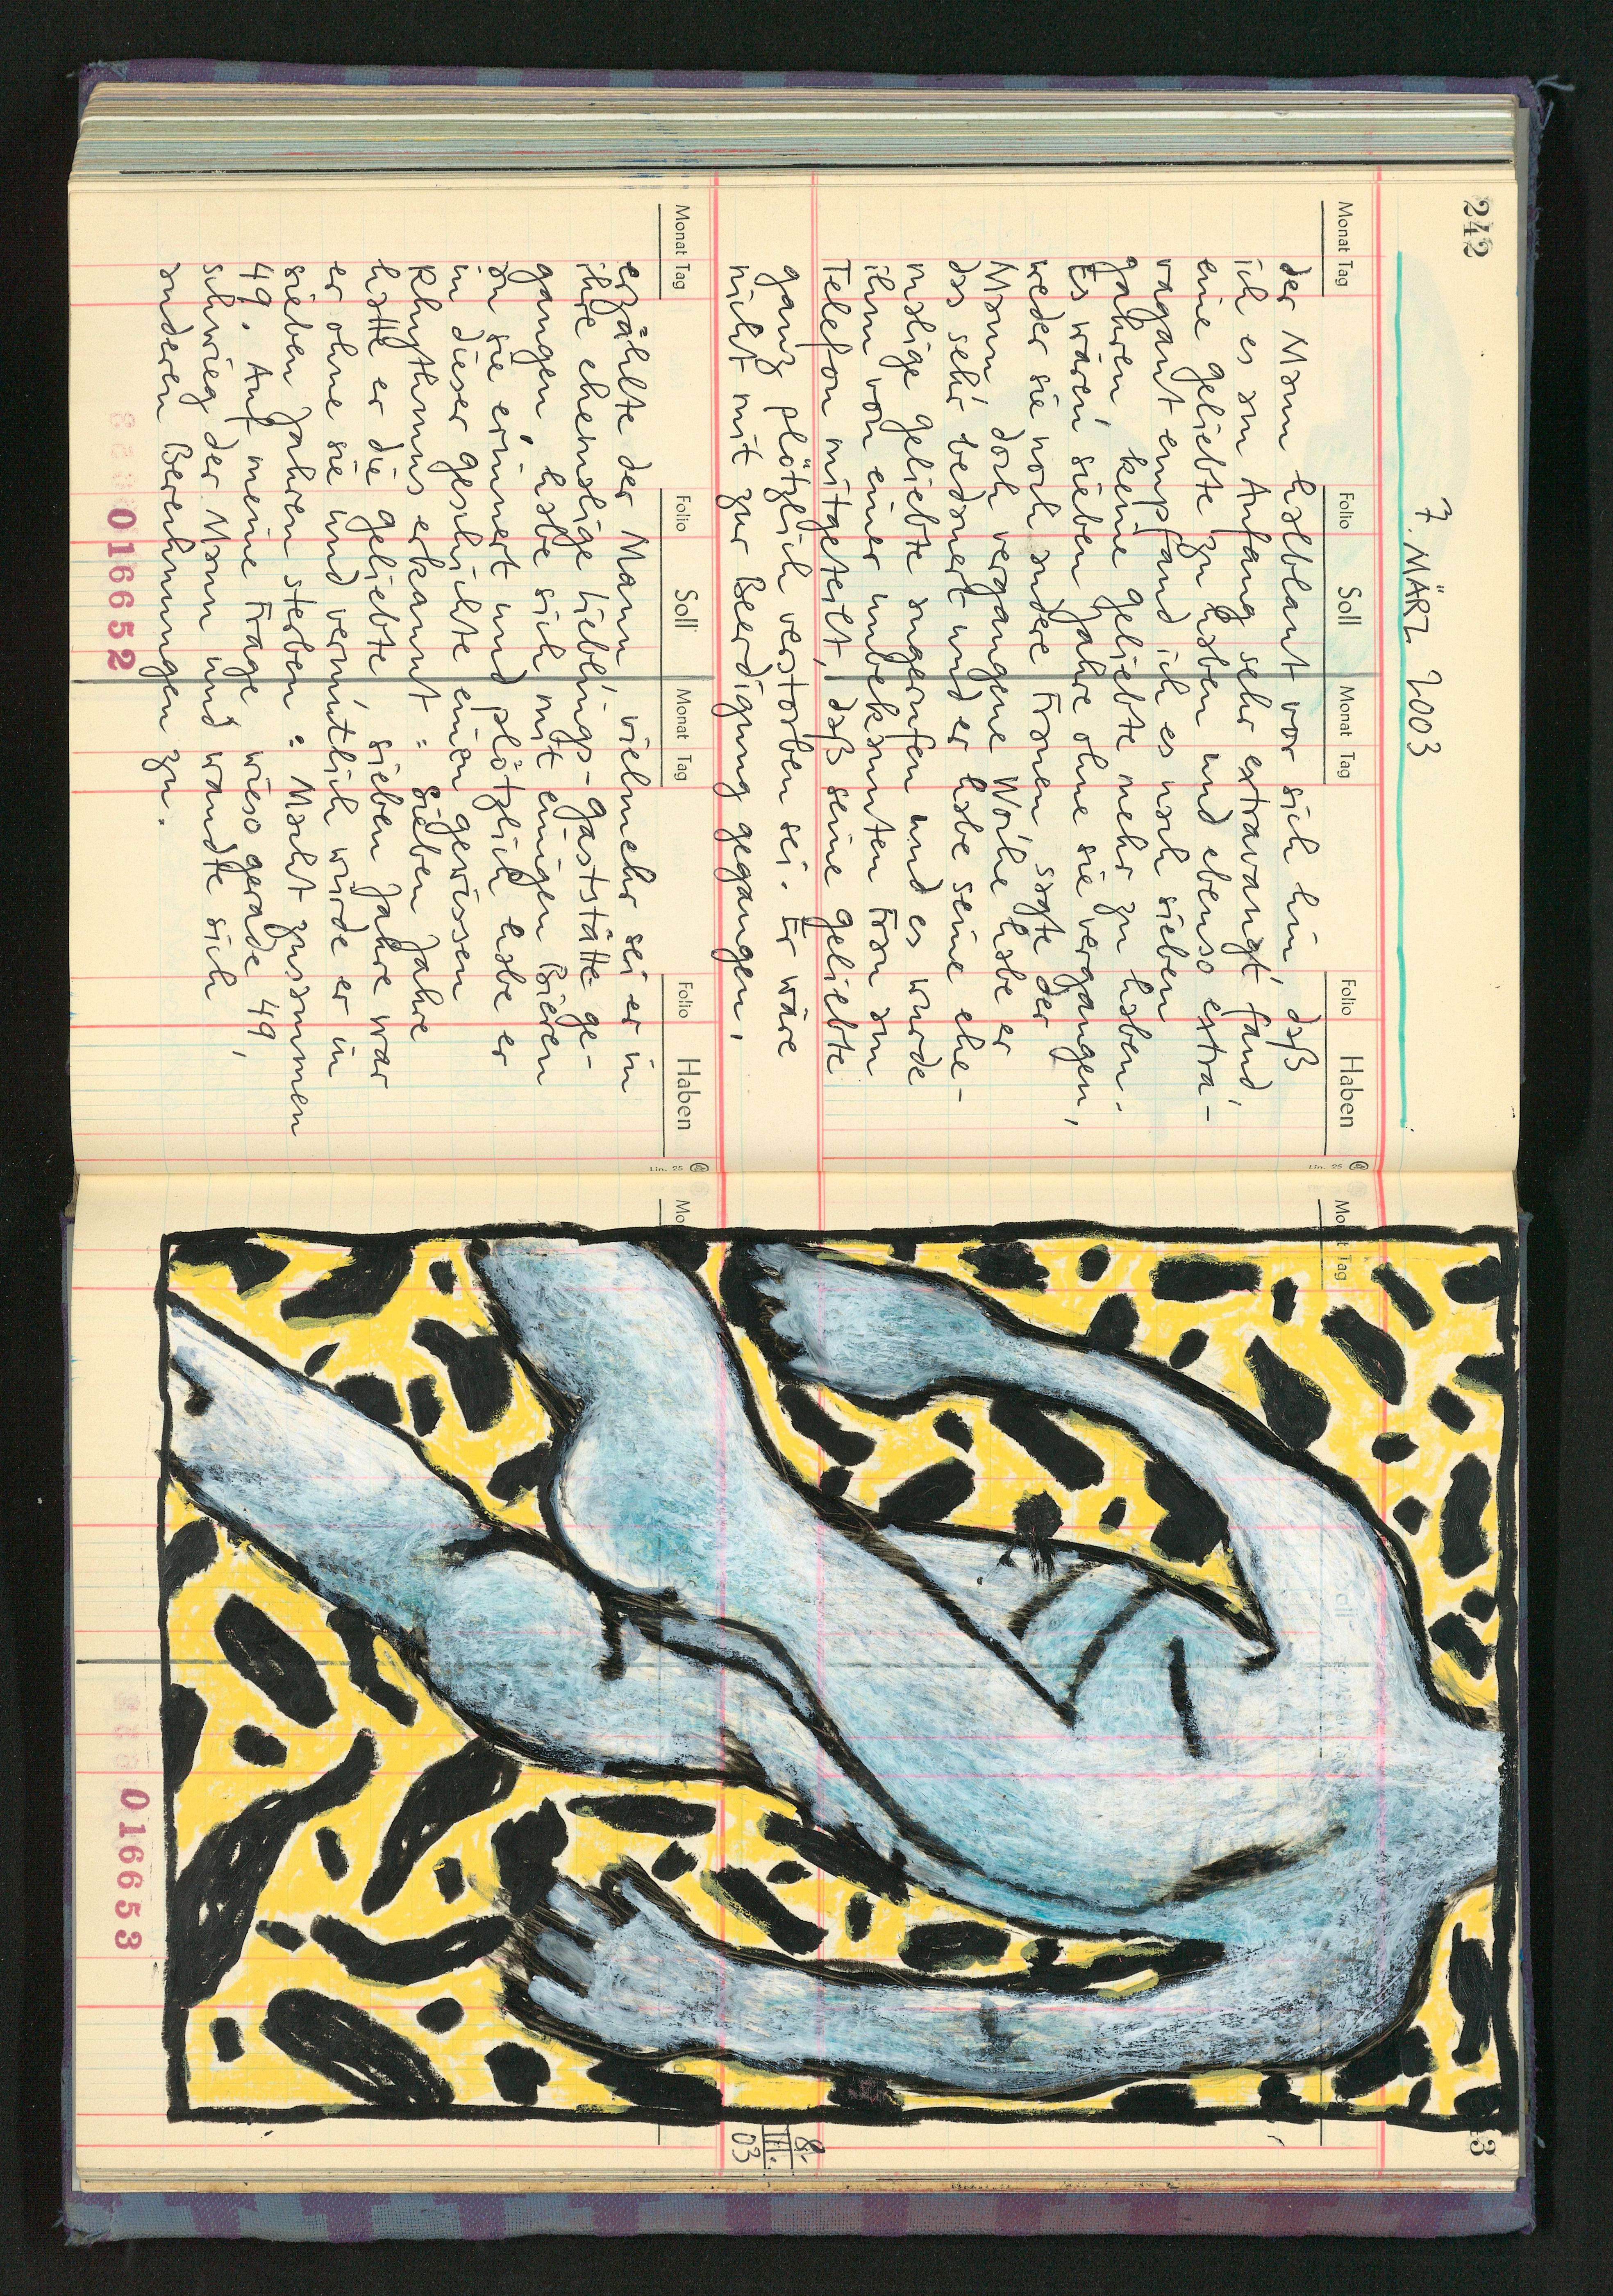 242
7. MÄRZ 2003
Monat Tag Folio Soll Monat Tag Folio Haben
der Mann halblaut vor sich hin, daß
ich es am Anfang sehr extravangt fand,
eine geliebte zu haben und ebenso extra-
vagant empfand ich es nach sieben
Jahren keine geliebte mehr zu haben.
Es wären sieben Jahre ohne sie vergangen,
weder sie noch andere Frauen sagte der
Mann, doch vergangene Woche habe er
das sehr bedauert und er habe seine ehe-
malige geliebte angerufen und es wurde
ihm von einer unbekannten Frau am
Telefon mitgeteilt, daß seine geliebte
ganz plötzlich verstorben sei. Er wäre
nicht mit zur Beerdigung gegangen,
Monat Tag Folio Soll Monat Tag Folio Haben
erzählte der Mann, vielmehr sei er in
ihre ehemalige Lieblings-gaststätte ge-
gangen, habe sich mit einigen Bieren
an sie erinnert und plötzlich habe er
in dieser geschichte einen gewissen
Rhythmus erkannt: Sieben Jahre
hatte er die geliebte, sieben Jahre war
er ohne sie und vermutlich würde er in
sieben Jahren sterben. Macht zusammen
49. Auf meine Frage, wieso gerade 49,
schwieg der Mann und wandte sich
anderen Berechnungen zu.
016652
Lin. 25
Lin. 25
Mo
Tag
Mo
3
8.
III.
03
016653